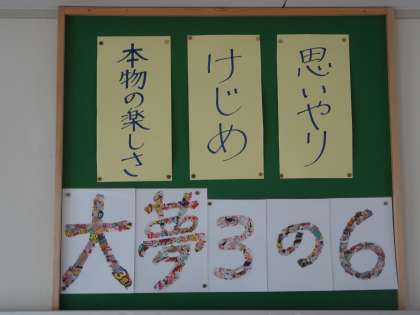 思いやり
けじめ
本物の楽しさ
大夢3の6